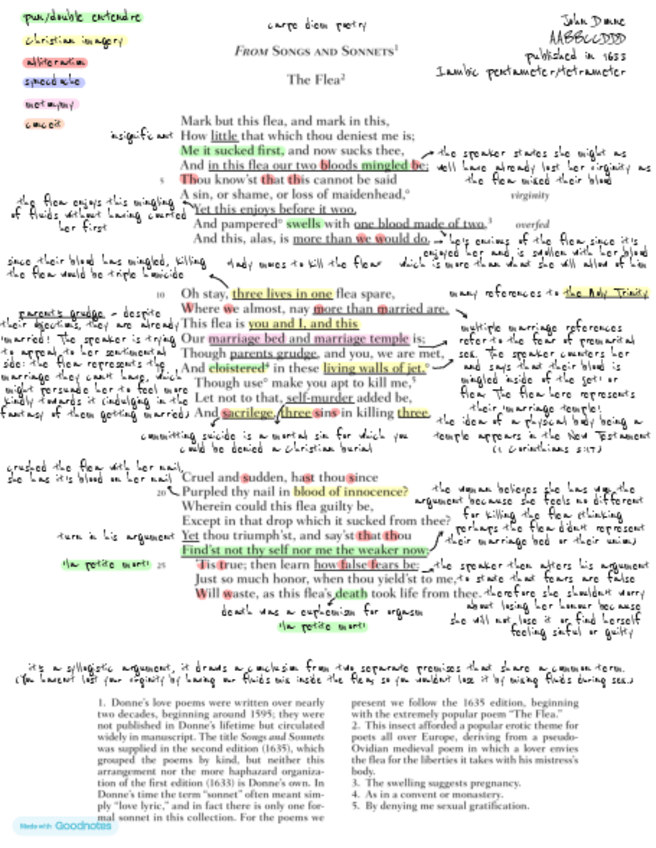 pun/double entendre
christian imagery
alliteration
synecdoche
metonymy
conceit
carpe diem poetry
John Donne
AABBCCDDD
published in 1633
Iambic pentameter/tetrameter
FROM SONGS AND SONNETS¹
The Flea²
Mark but this flea, and mark in this,
insignificant
How little that which thou deniest me is;
Me it sucked first, and now sucks thee,
And in this flea our two bloods mingled be;
the speaker states she might as
well have already lost her virginity as
the flea mixed their blood
5 Thou know'st that this cannot be said
A sin, or shame, or loss of maidenhead,° virginity
the flea enjoys this mingling
of fluids without having courted
her first
Yet this enjoys before it woo,
And pampered° swells with one blood made of two,³ overfed
And this, alas, is more than we would do.
he's envious of the flea since it's
enjoyed her and is swollen with her blood
which is more than what she will allow of him
since their blood has mingled, killing
the flea would be triple homicide
lady moves to kill the flea
10 Oh stay, three lives in one flea spare,
many references to the Holy Trinity
Where we almost, nay more than married are.
This flea is you and I, and this
Our marriage bed and marriage temple is;
Though parents grudge, and you, we are met,
And cloistered⁴ in these living walls of jet.°
Though use° make you apt to kill me,⁵
Let not to that, self-murder added be,
And sacrilege, three sins in killing three.
parent's grudge - despite
their objections, they are already
married! The speaker is trying
to appeal to her sentimental
side: the flea represents the
marriage they can't have, which
might persuade her to feel more
kindly towards it (indulging in the
fantasy of them getting married)
multiple marriage references
refer to the fear of premarital
sex. The speaker counters her
and says that their blood is
mingled inside of the jet! or
flea. The flea here represents
their 'marriage temple'!
the idea of a physical body being a
temple appears in the New Testament
committing suicide is a mortal sin for which you
could be denied a Christian burial
crushed the flea with her nail,
she has it's blood on her nail
Cruel and sudden, hast thou since
20 Purpled thy nail in blood of innocence?
Wherein could this flea guilty be,
Except in that drop which it sucked from thee?
turn in his argument
Yet thou triumph'st, and say'st that thou
Find'st not thy self nor me the weaker now;
the woman believes she has won the
argument because she feels no different
for killing the flea (thinking
perhaps the flea didn't represent
their marriage bed or their union)
'la petite mort'
25 'Tis true; then learn how false fears be:
Just so much honor, when thou yield'st to me,
Will waste, as this flea's death took life from thee.
the speaker then alters his argument
to state that fears are false
therefore she shouldn't worry
about losing her honour because
she will not lose it or find herself
feeling sinful or guilty
death was a euphemism for orgasm
'la petite mort'
it's a syllogistic argument, it draws a conclusion from two separate premises that share a common term.
(You haven't lost your virginity by having our fluids mix inside the flea, so you wouldn't lose it by mixing fluids during sex.)
1. Donne's love poems were written over nearly
two decades, beginning around 1595; they were
not published in Donne's lifetime but circulated
widely in manuscript. The title Songs and Sonnets
was supplied in the second edition (1635), which
grouped the poems by kind, but neither this
arrangement nor the more haphazard organiza-
tion of the first edition (1633) is Donne's own. In
Donne's time the term "sonnet" often meant sim-
ply "love lyric," and in fact there is only one for-
mal sonnet in this collection. For the poems we
present we follow the 1635 edition, beginning
with the extremely popular poem "The Flea."
2. This insect afforded a popular erotic theme for
poets all over Europe, deriving from a pseudo-
Ovidian medieval poem in which a lover envies
the flea for the liberties it takes with his mistress's
body.
3. The swelling suggests pregnancy.
4. As in a convent or monastery.
5. By denying me sexual gratification.
Made with Goodnotes